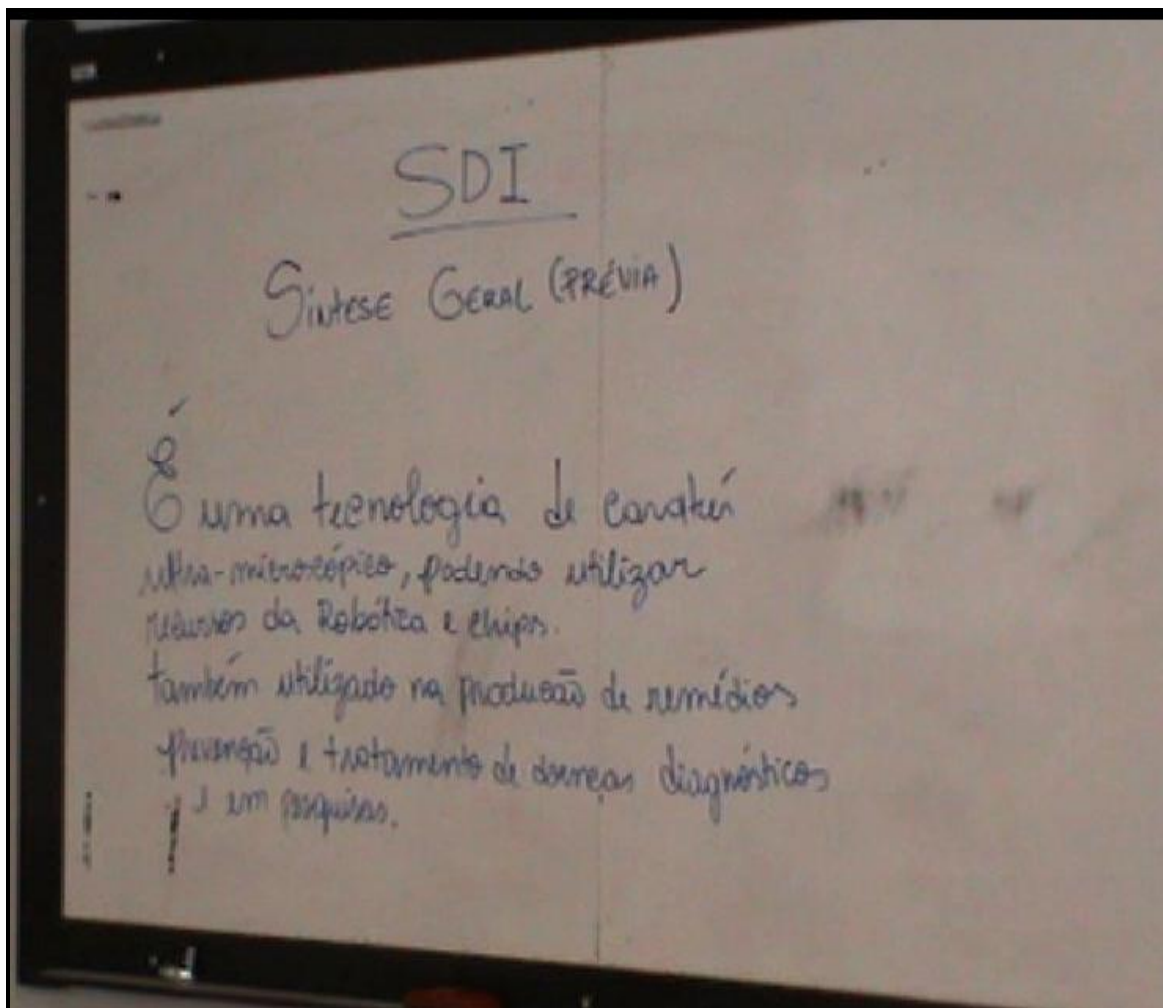 SDI
Síntese Geral (Prévia)
É uma tecnologia de caráter
ultra-microscópico, podendo utilizar
recursos da Robótica e chips.
também utilizado na produção de remédios
prevenção e tratamento de doenças diagnósticos
e em pesquisas.